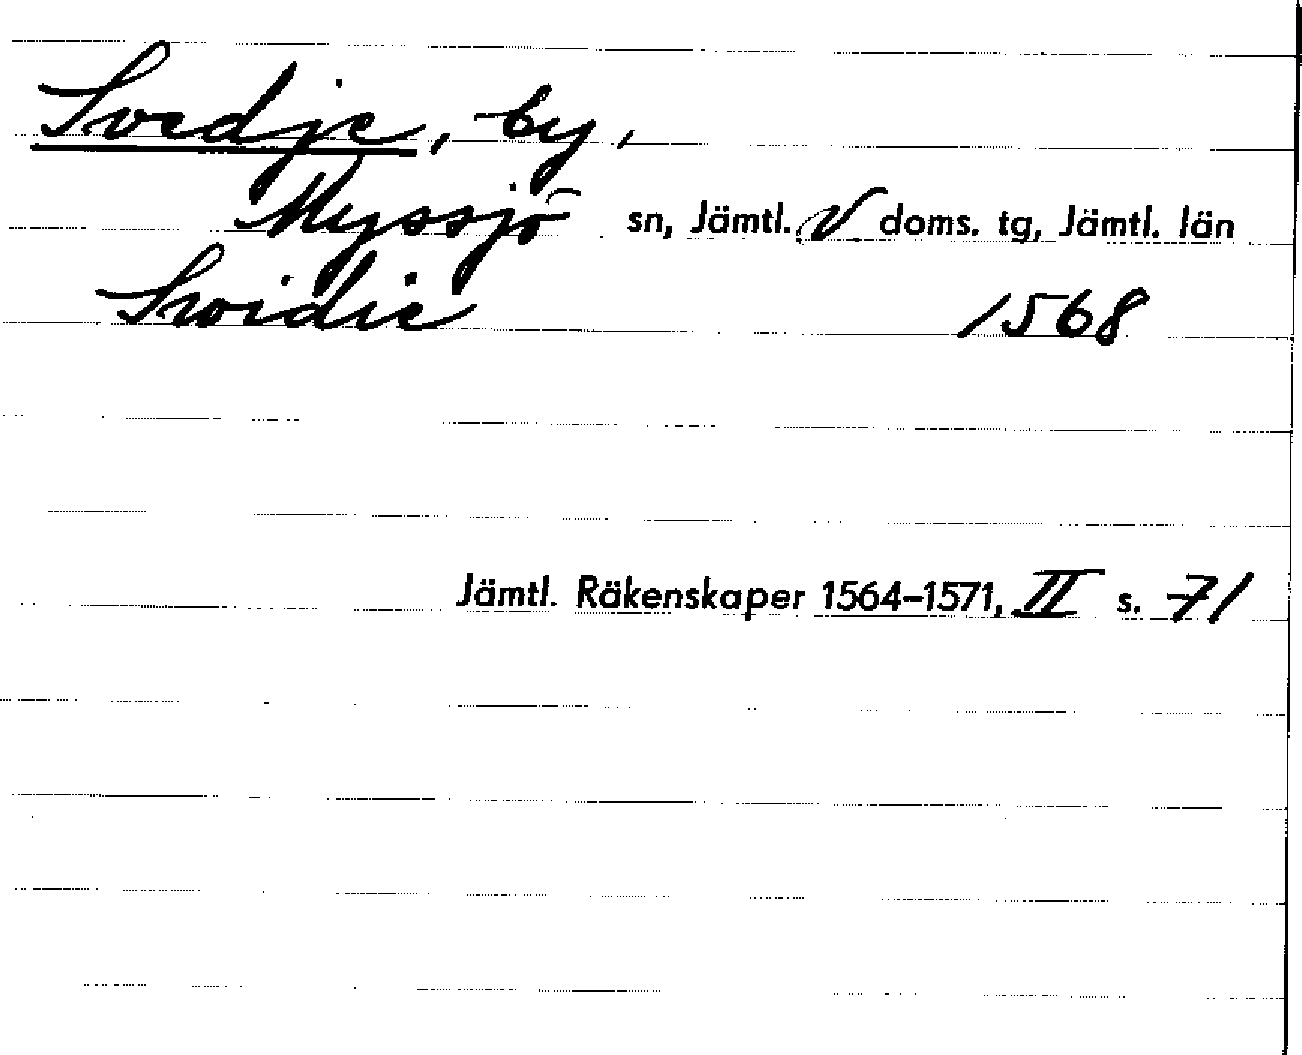 Svedje, by,
Myssjö sn, Jämtl. V doms. tg, Jämtl. län
Svidie 1568
Jämtl. Räkenskaper 1564-1571, II s. 71